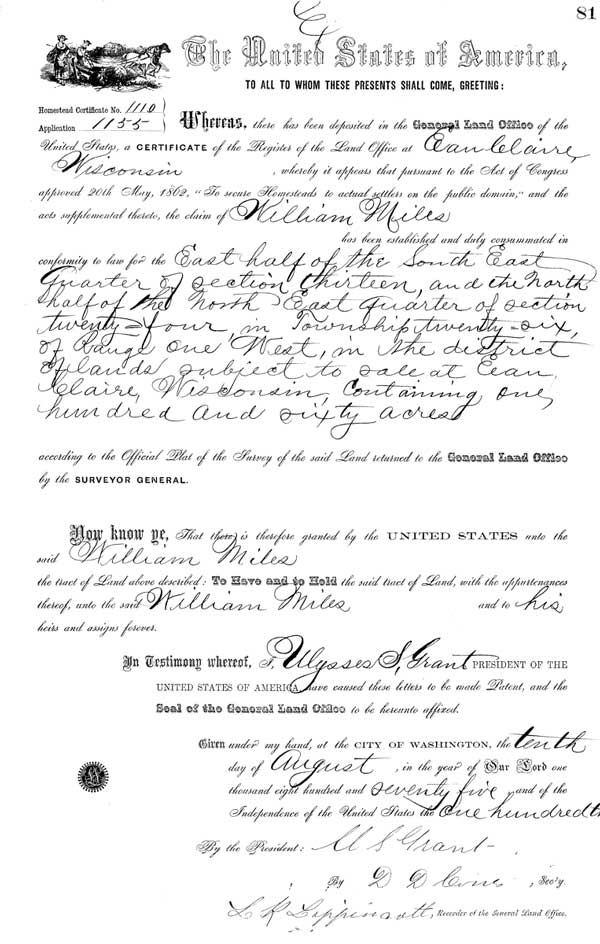 81
The United States of America,
TO ALL TO WHOM THESE PRESENTS SHALL COME, GREETING:
Homestead Certificate No. 1110
Application 1155
Whereas, there has been deposited in the General Land Office of the
United States, a CERTIFICATE of the Register of the Land Office at Eau Claire,
Wisconsin, whereby it appears that pursuant to the Act of Congress
approved 20th May, 1862, "To secure Homesteads to actual settlers on the public domain," and the
acts supplemental thereto, the claim of William Miles
has been established and duly consummated in
conformity to law for the East half of the South East
Quarter of section thirteen, and the North
half of the North East quarter of section
twenty-four in Township twenty-six,
of Range one West, in the district
of lands subject to sale at Eau
Claire, Wisconsin, Containing one
hundred and sixty acres
according to the Official Plat of the Survey of the said Land returned to the General Land Office
by the SURVEYOR GENERAL.
Now know ye, That there is therefore granted by the UNITED STATES unto the
said William Miles
the tract of Land above described: To Have and to Hold the said tract of Land, with the appurtenances
thereof, unto the said William Miles and to his
heirs and assigns forever.
In Testimony whereof, I, Ulysses S. Grant PRESIDENT OF THE
UNITED STATES OF AMERICA, have caused these letters to be made Patent, and the
Seal of the General Land Office to be hereunto affixed.
Given under my hand, at the CITY OF WASHINGTON, the tenth
day of August, in the year of Our Lord one
thousand eight hundred and seventy five and of the
Independence of the United States the one hundredth
By the President: U S Grant
By D D Cone, Sec'y.
L K Lippincott, Recorder of the General Land Office.